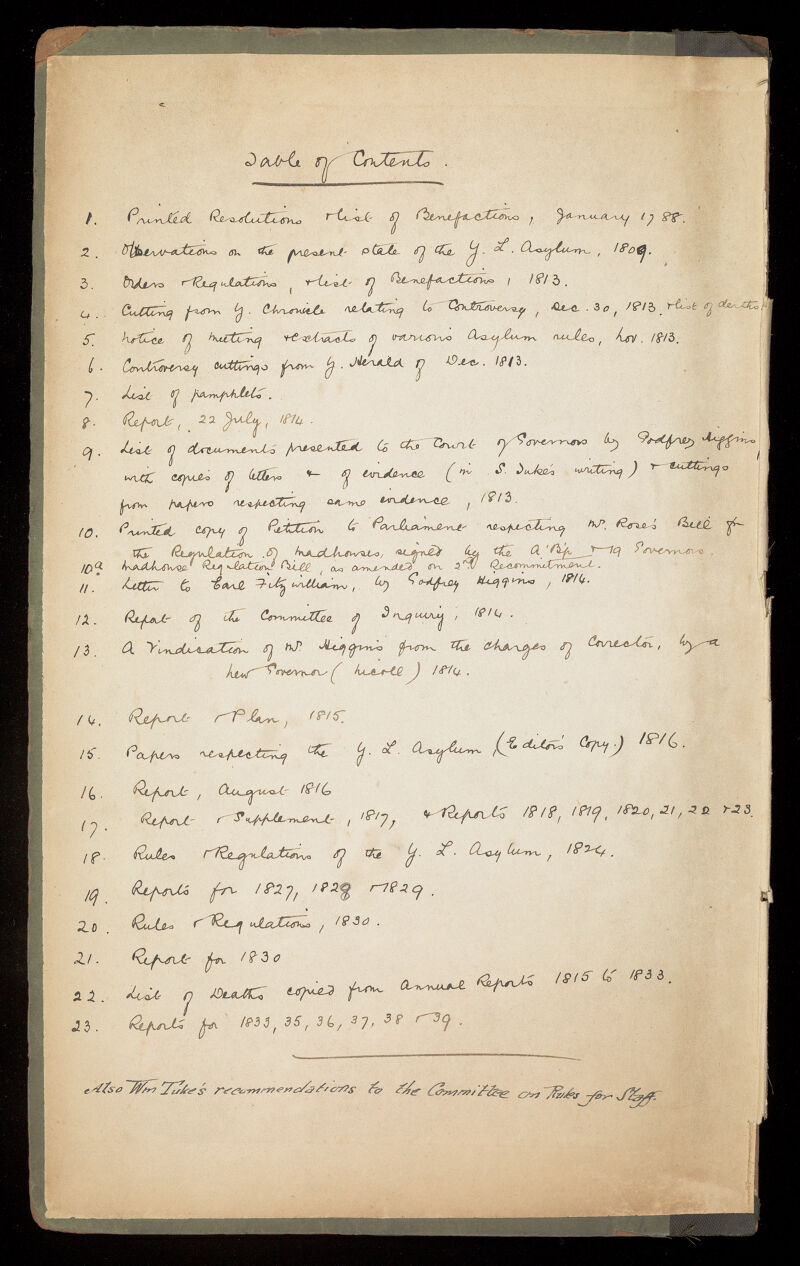 Table of Contents.
1. Printed Resolutions & list of Benefactions, January 1788.
2. Observations on the present state of the Y. L. Asylum, 1809.
3. Orders & Regulations, & list of Benefactions, 1813.
4. Cutting from Y. Chronicle relating to Controversy, Dec. 30, 1813. & list of deaths.
5. Notice of meeting & extracts of various Asylum rules, Nov. 1813.
6. Controversy cuttings from Y. Herald of Dec. 1813.
7. List of pamphlets.
8. Report, 22 July, 1814.
9. List of documents presented to the Court of Governors by Godfrey Higgins,
with copies of letters & of evidence (in S. Tuke's writing) & cuttings
from papers respecting same evidence, 1813.
10. Printed copy of Petition to Parliament respecting Mr. Rose's Bill for
the Regulation of Madhouses, signed by the A. Bp. & 19 Governors.
10a Madhouse Regulation Bill, as amended on 2nd Recommitment.
11. Letter to Earl Fitzwilliam, by Godfrey Higgins, 1814.
12. Report of the Committee of Inquiry, 1814.
13. A Vindication of Mr. Higgins from the charges of Corrector, by a
New Governor (Nicoll) 1814.
14. Report & Plan, 1815.
15. Papers respecting the Y. L. Asylum, (Editor's Copy.) 1816.
16. Report, August 1816
17. Report & Supplement, 1817, & Reports 1818, 1819, 1820, 21, 22 & 23.
18. Rules & Regulations of the Y. L. Asylum, 1824.
19. Reports for 1827, 1828 & 1829.
20. Rules & Regulations, 1830.
21. Report for 1830
22. List of Deaths copied from Annual Reports 1815 to 1833.
23. Reports for 1833, 35, 36, 37, 38 & 39.
Also Wm Tuke's recommendations to the Committee on Rules for Staff.